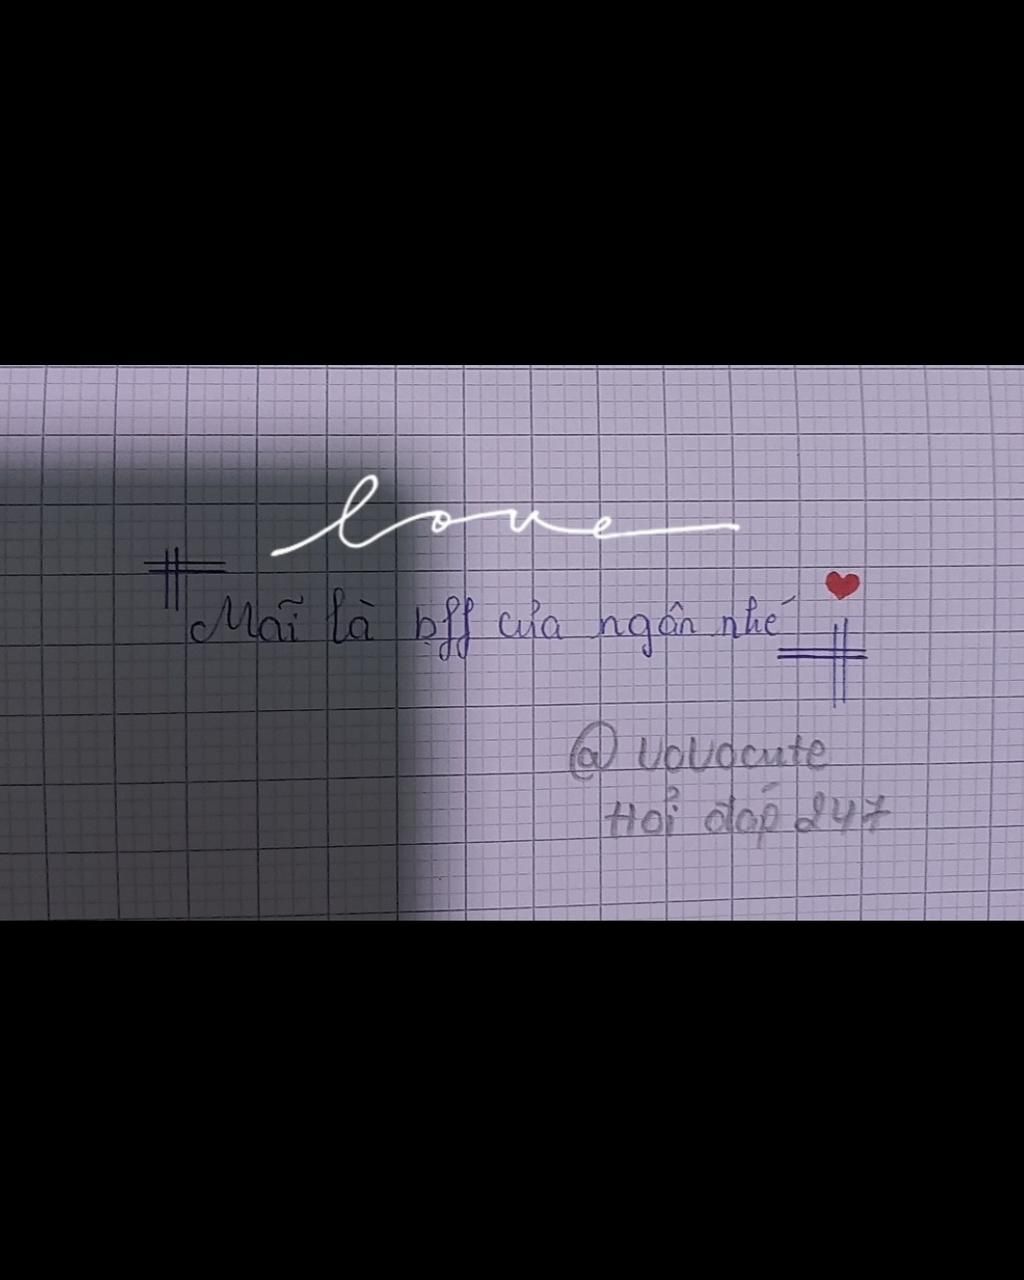 love
Mãi là bff của ngân nhé
@vovocute
Hỏi đáp 247